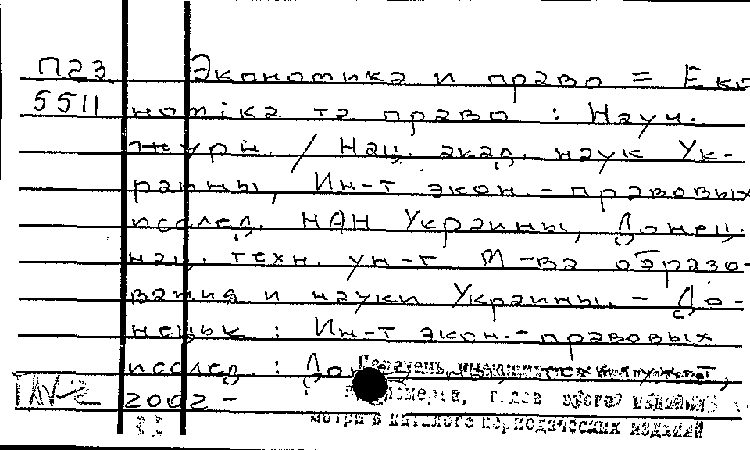 П23 Экономика и право = Еко-
5511 номіка та право : Науч.
журн. / Нац. акад. наук Ук-
раины, Ин-т экон.-правовых
исслед. НАН Украины, Донец.
нац. техн. ун-т М-ва образо-
вания и науки Украины. - До-
нецьк : Ин-т экон.-правовых
исслед. :
2002-
смотри в каталоге периодических изданий